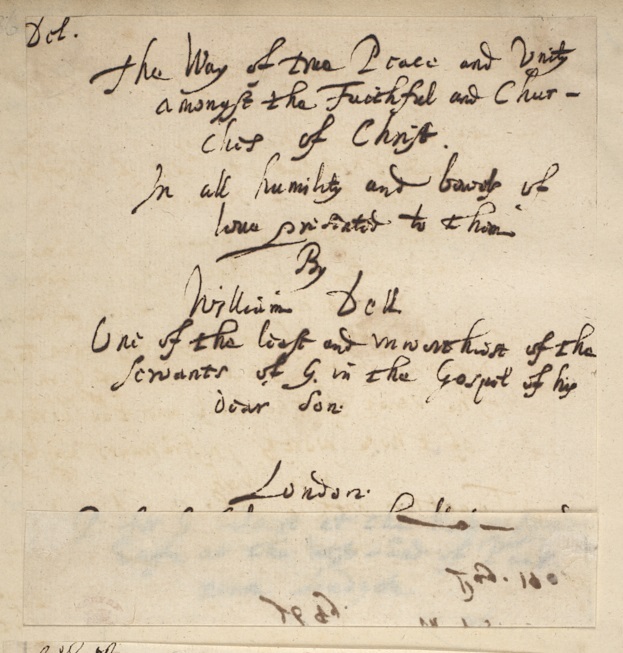 Del.
The Way of true Peace and Unity
amongst the Faithful and Chur-
ches of Christ.
In all humility and bowels of
loue presented to them
By
William Dell
One of the least and vnworthiest of the
servants of G. in the Gospel of his
dear Son.
London.